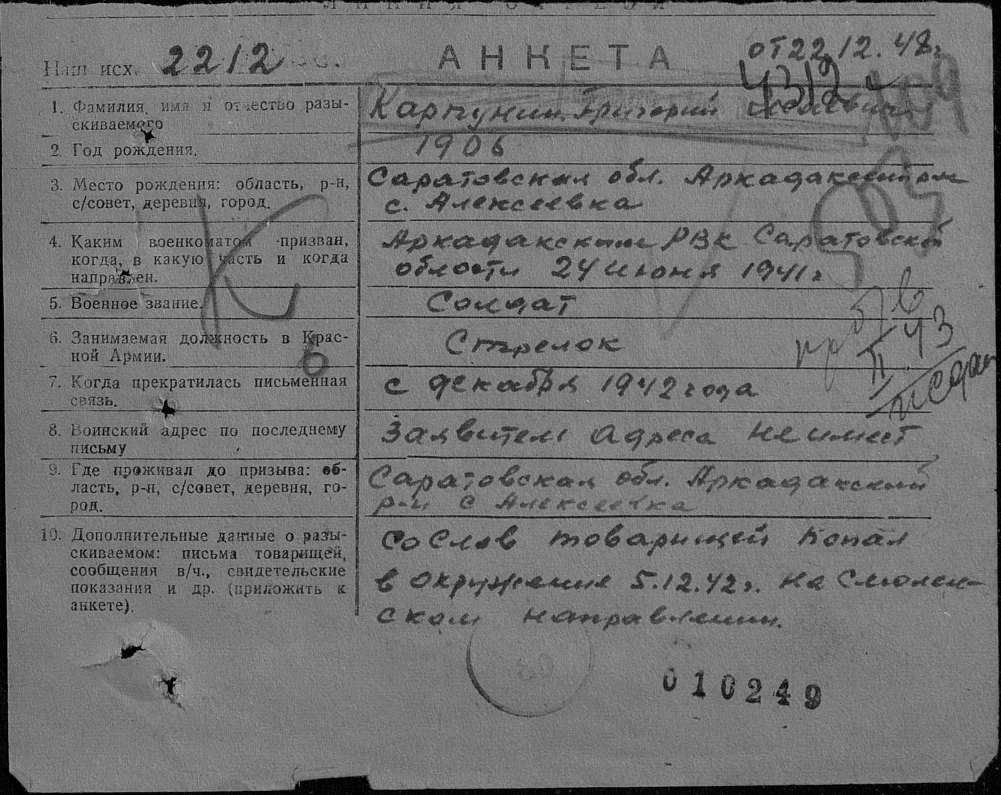 ЛИНИЯ ОТРЕЗА
Наш исх. 2212 АНКЕТА от 22.12.48г.
4312
1. Фамилия, имя и отчество разы-
скиваемого
Карпунин Григорий
2. Год рождения.
1906
3. Место рождения: область, р-н,
с/совет, деревня, город.
Саратовская обл. Аркадакский р-н
с. Алексеевка
4. Каким военкоматом призван,
когда, в какую часть и когда
направлен.
Аркадакским РВК Саратовской
области 24 июня 1941г
5. Военное звание.
Солдат
6. Занимаемая должность в Крас-
ной Армии.
Стрелок
7. Когда прекратилась письменная
связь.
с декабря 1942 года
8. Воинский адрес по последнему
письму
Заявитель адреса не имеет
9. Где проживал до призыва: об-
ласть, р-н, с/совет, деревня, го-
род.
Саратовская обл. Аркадакский
р-н с Алексеевка
10. Дополнительные данные о разы-
скиваемом: письма товарищей,
сообщения в/ч., свидетельские
показания и др. (приложить к
анкете).
со слов товарищей попал
в окружение 5.12.42г. на Смолен-
ском направлении.
пр б/в
II 43
010249